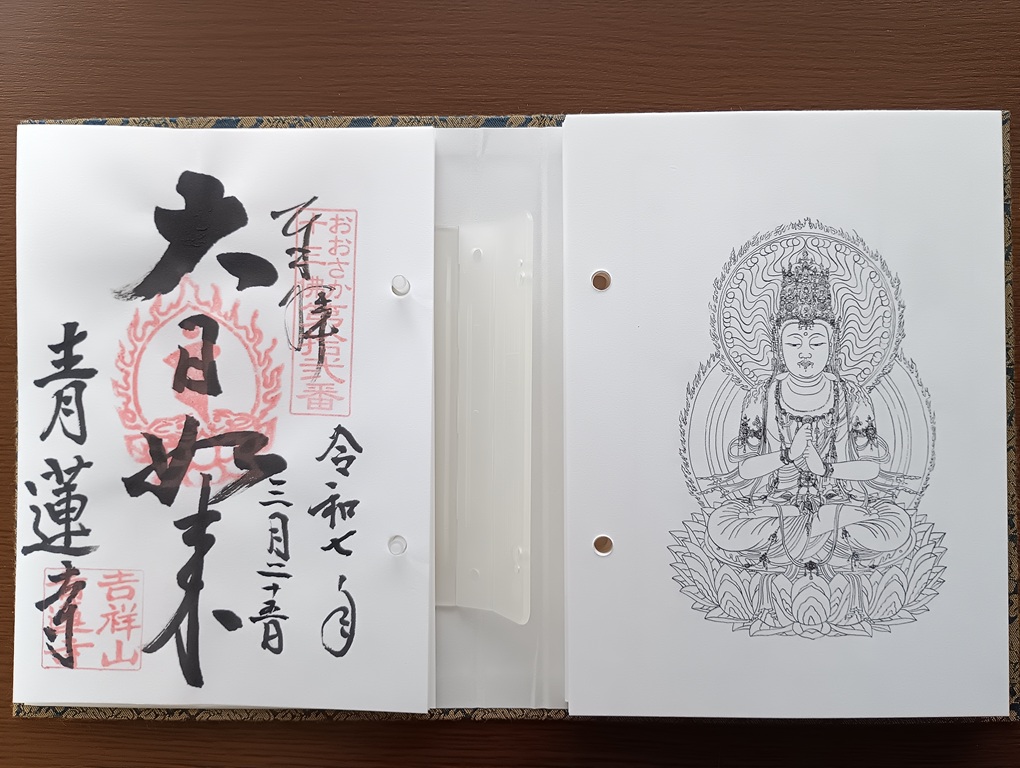 奉拝
おおさか
十三佛
第拾弐番
令和七年
三月二十五日
大日如来
青蓮寺
吉祥山
青蓮寺